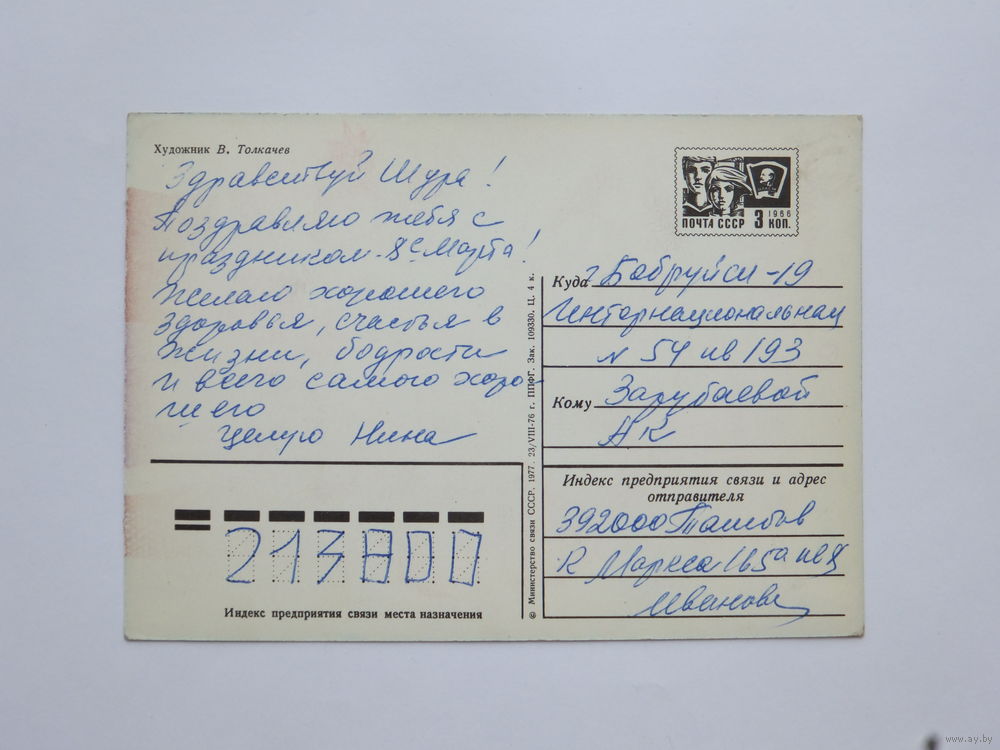 Художник В. Толкачев
Здравствуй Шура!
Поздравляю тебя с
праздником - 8с Марта!
Желаю хорошего
здоровья, счастья в
жизни, бодрости
и всего самого хоро-
шего
Целую Нина
213800
Индекс предприятия связи места назначения
© Министерство связи СССР. 1977. 23/VIII-76 г. ППФГ. Зак. 109330. Ц. 4 к.
1966
ПОЧТА СССР 3 КОП.
Куда г Бобруйск-19
Интернациональная
N 54 кв 193
Кому Зарубаевой
АК
Индекс предприятия связи и адрес
отправителя
392000 Тамбов
К Маркса 165а кв
Иванова
www.ay.by